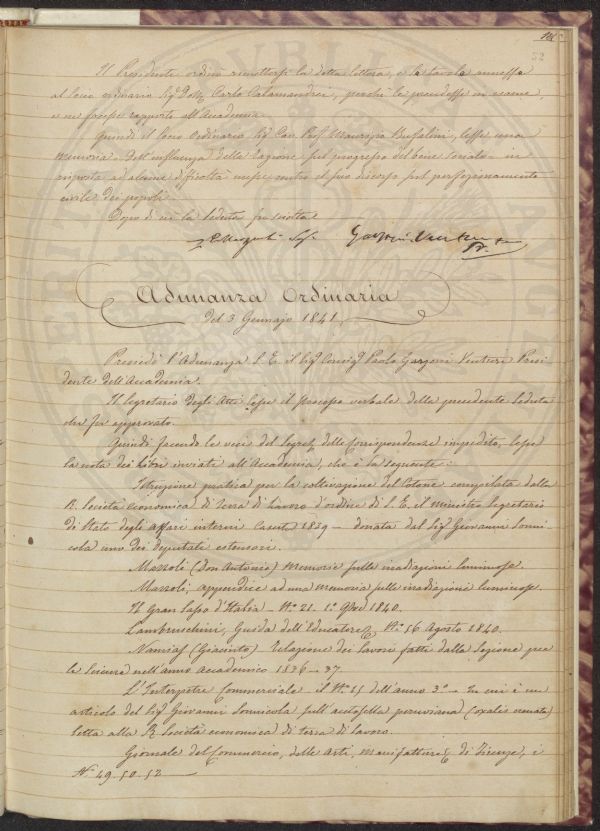 52
Il Presidente ordinò rimettersi la detta lettera, e la tavola annessa
al Socio ordinario Sig.r Dott. Carlo Calamandrei, perchè le prendesse in esame,
e ne facesse rapporto all'Accademia.
Quindi il Socio Ordinario Sig. Cav. Prof. Maurizio Bufalini, lesse una
memoria - Dell'influenza della ragione sul progresso del bene sociale - in
risposta ad alcune difficoltà mosse contro il suo discorso sul perfezionamento
civile dei popoli.
Dopo di ciò la seduta fu sciolta
Adunanza Ordinaria
del 3 Gennajo 1841.
Presiedè l'Adunanza S. E. il Sig. Consig. Paolo Garzoni Venturi Presi
dente dell'Accademia.
Il Segretario degli Atti lesse il processo verbale della precedente seduta
che fu approvato.
Quindi facendo le veci del Segret. delle Corrispondenze impedito, lesse
la nota dei Libri inviati all'Accademia, che è la seguente:
Istruzione pratica per la coltivazione del Cotone compilata dalla
R. Società economica di Terra di Lavoro d'ordine di S. E. il ministro Segretario
di Stato degli affari interni Caserta 1839 - donata dal Sig. Giovanni Sonni
cola uno dei deputati estensori.
Mazzoli (Don Antonio) Memorie sulle irradiazioni luminose.
Mazzoli, appendice ad una memoria sulle irradiazioni luminose.
Il Gran Sasso d'Italia - N.o 21. 1.o 9bre 1840.
Lambruschini, Guida dell'Educatore, N.o 56 Agosto 1840.
(Giacinto) Relazione dei lavori fatti dalla Sezione per
le Scienze nell'anno Accademico 1836-37.
L'Interpetre Commerciale - il N.o 25 dell'anno 3.o - In cui è un
articolo del Sig. Giovanni Sonnicola sull'acetosella peruviana (oxalis crenata)
letta alla R. Società economica di terra di lavoro.
Giornale del Commercio, delle Arti, Manifatture di Firenze, i
N. 49-50-52